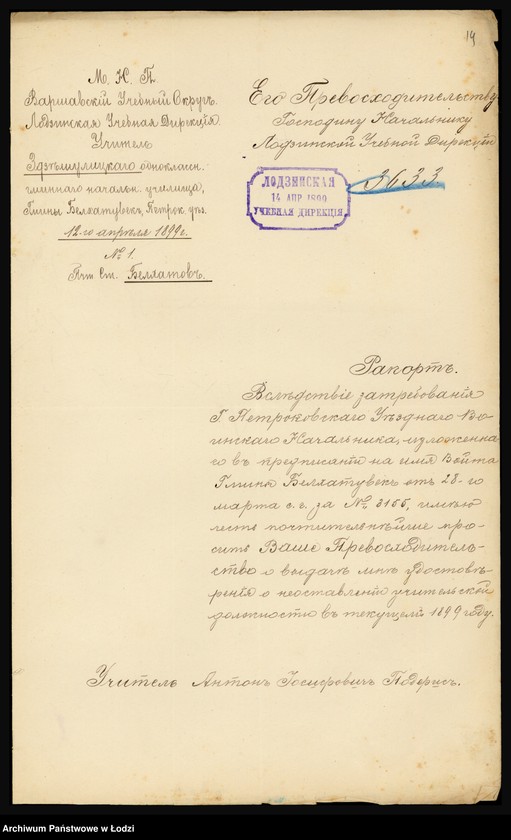 19
М. Н. П.
Варшавскій Учебный Округъ.
Лодзинская Учебная Дирекція.
Учитель
одноклассн.
гминнаго начальн. училища,
Гмины Белхатувекъ, Петрок. уѣз.
12-го апрѣля 1899 г.
№ 1.
Поч. Ст. Белхатовъ.
Его Превосходительству
Господину Начальнику
Лодзинской Учебной Дирекціи
ЛОДЗИНСКАЯ
14 АПР 1899
УЧЕБНАЯ ДИРЕКЦІЯ
3633
Рапортъ.
Вслѣдствіе затребованія
Г. Петроковскаго Уѣзднаго Во-
инскаго Начальника, изложенна-
го въ предписаніи на имя Войта
Гмины Белхатувекъ отъ 28-го
марта с. г. за № 3155, имѣю
честь почтительнѣйше про-
сить Ваше Превосходитель-
ство о выдачѣ мнѣ удостовѣ-
ренія о неоставленіи учительской
должности въ текущемъ 1899 году.
Учитель Антонъ Іосифовичъ
Archiwum Państwowe w Łodzi